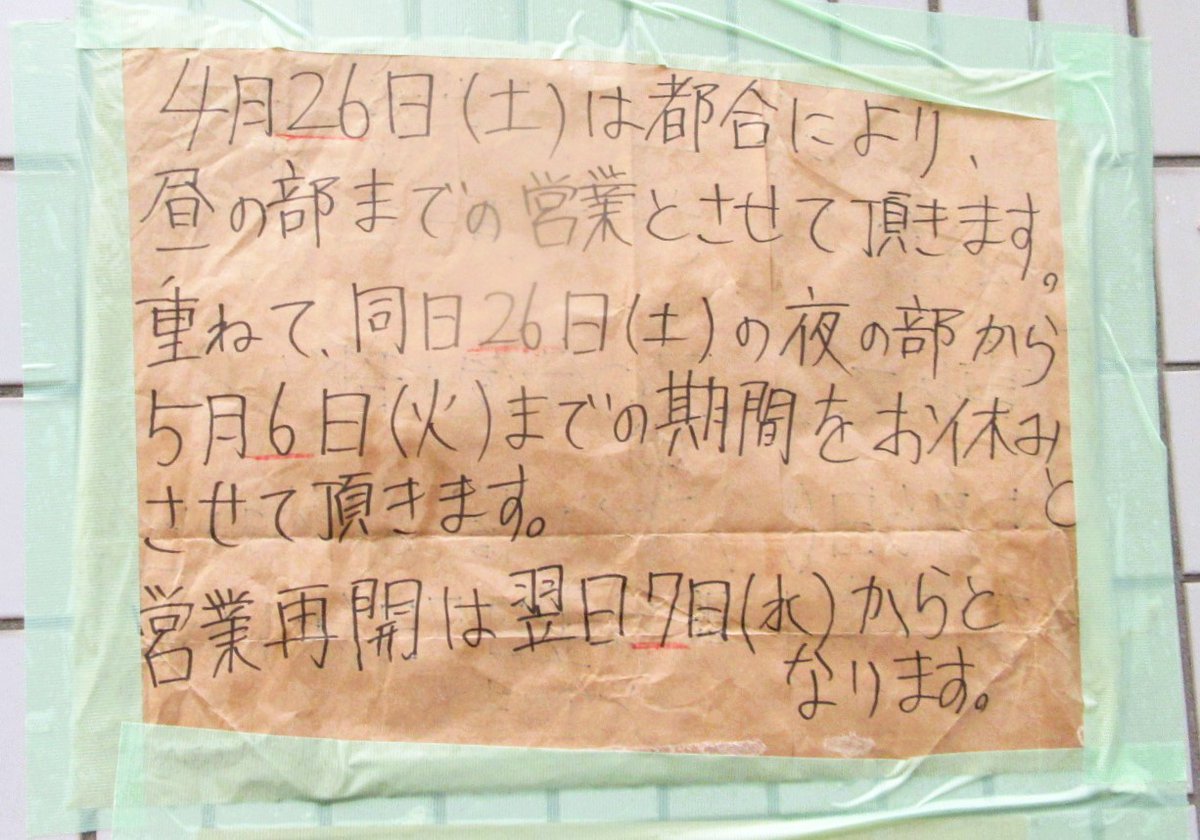 4月26日(土)は都合により、
昼の部までの営業とさせて頂きます。
重ねて、同日26日(土)の夜の部から
5月6日(火)までの期間をお休みと
させて頂きます。
営業再開は翌日7日(水)からと
なります。